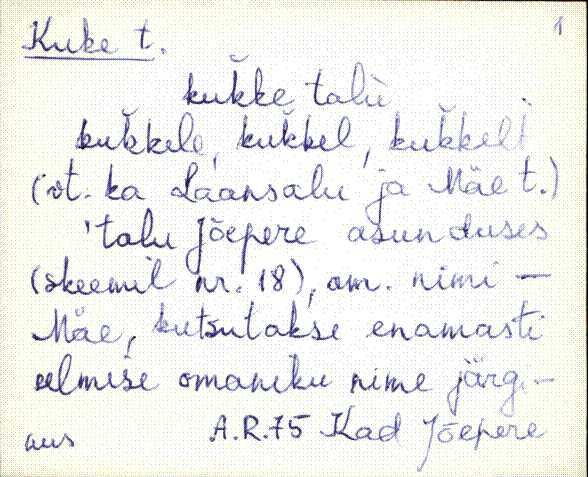 Kuke t. 1
kuk̆ke talù
kuk̆kele, kuk̆kel, kuk̆kelt
(vt. ka Laansalu ja Mäe t.)
'talu Jõepere asunduses
(skeemil nr. 18), om. nimi –
Mäe, kutsutakse enamasti
eelmise omaniku nime järgi –
A.R.75 Kad Jõepere